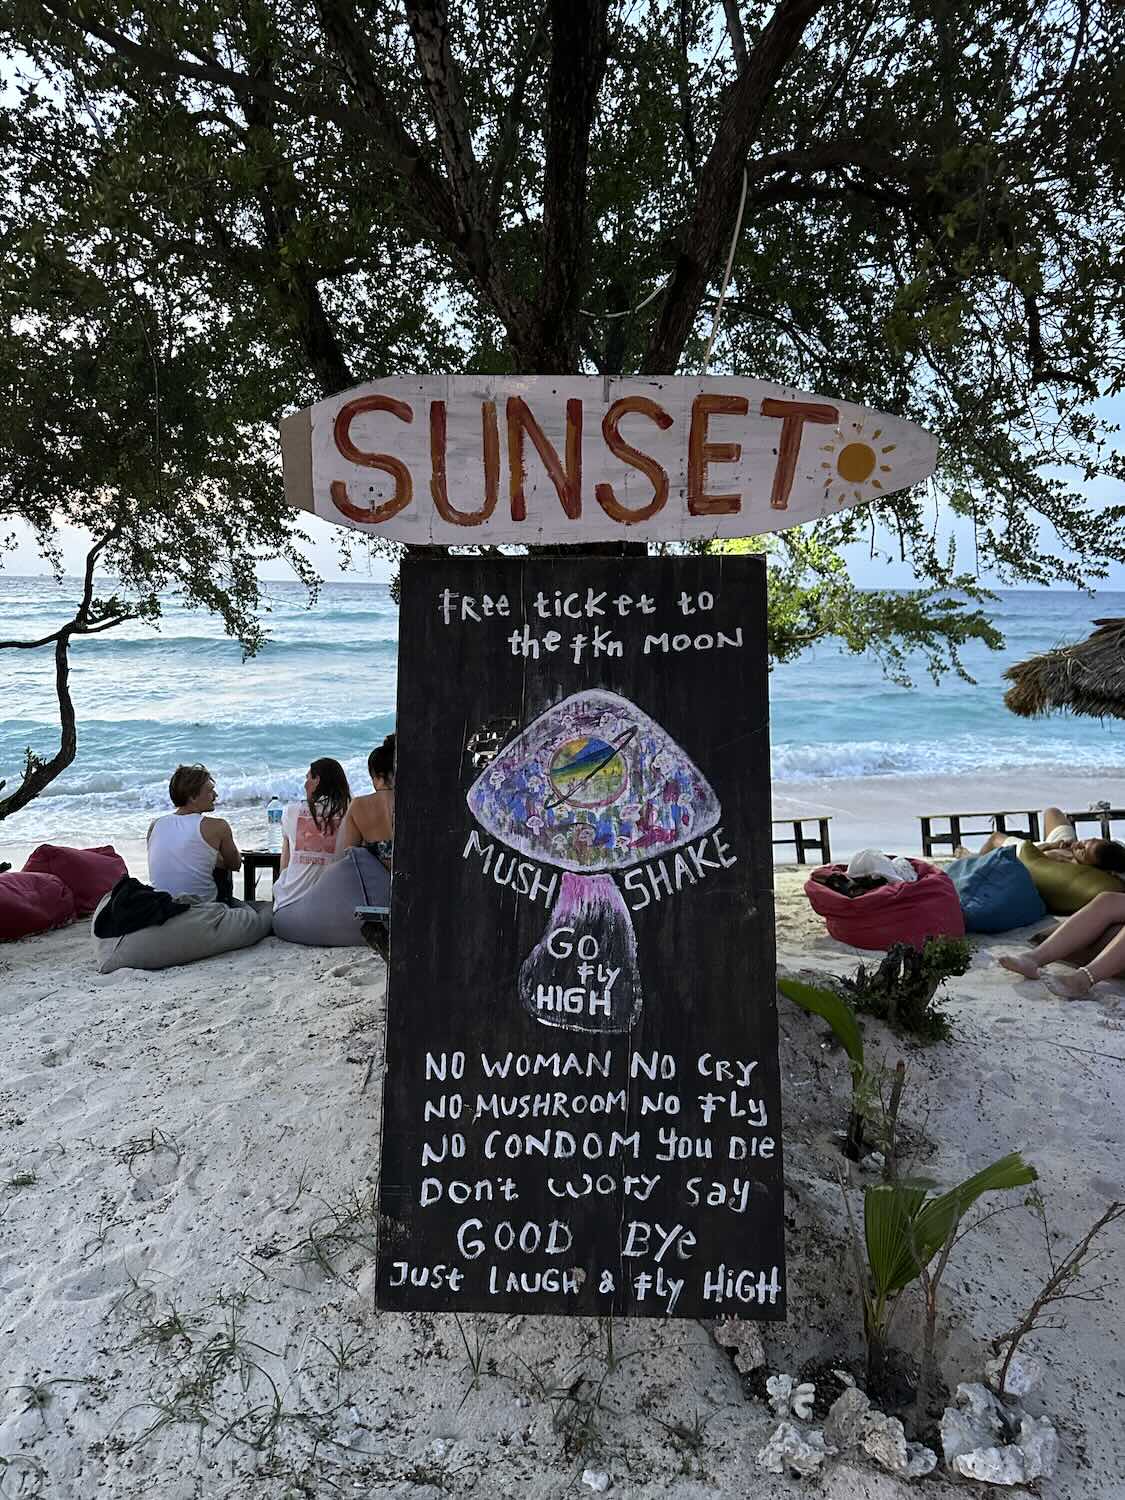 SUNSET
FRee ticket to
the fkn MOON
MUSH SHAKE
GO
fly
HIGH
NO WOMAN NO CRy
NO MUSHROOM NO Fly
NO CONDOM you Die
Don't wory say
GOOD Bye
Just LAUGH & fly HiGH